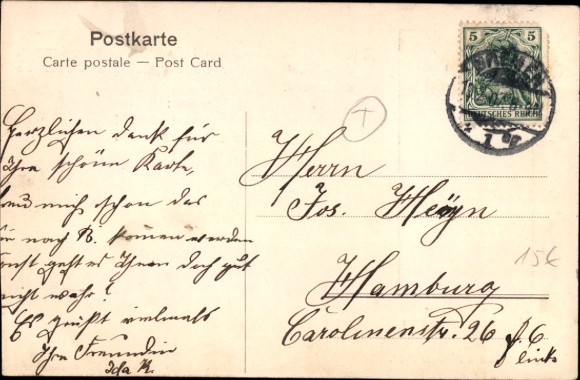 Postkarte
Carte postale — Post Card
5 5
BREMEN
DEUTSCHES REICH
1
Herzlichen dank für
Ihre schöne Karte,
mich schon das
nach B. kommen werden
geht es Ihnen doch gut
nicht wahr?
Es grüßt vielmals
Ihre Freundin
Ida R.
Herrn
Jos. Heyn
Hamburg
Carolinenstr. 26
links
15€